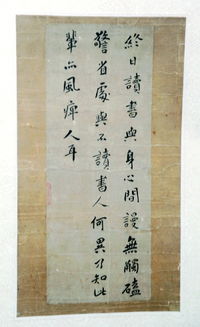 終日讀書與身心間謾無觸磕
警省處與不讀書人何異乃知此
輩亦風痺人耳